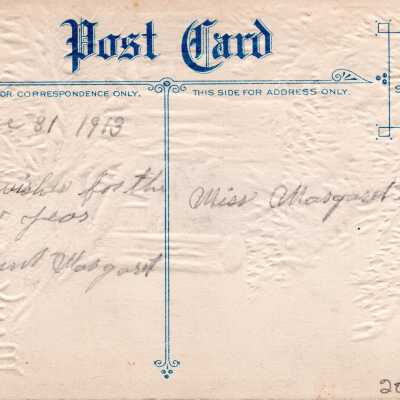 Post Card
OR CORRESPONDENCE ONLY.
THIS SIDE FOR ADDRESS ONLY.
S
31 1913
wishes for the
Miss Margaret
Year
Margaret